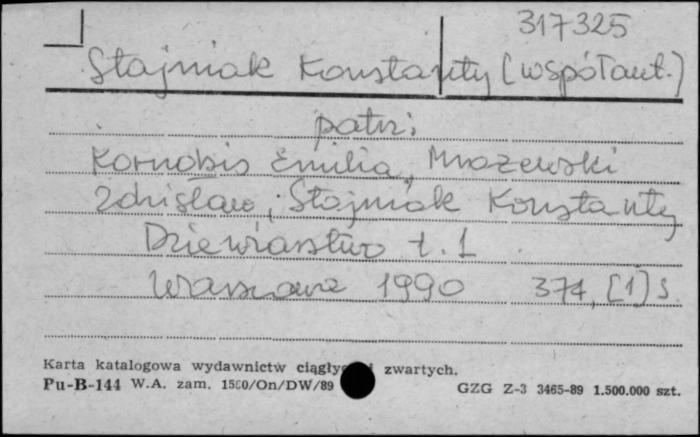 317325
Stajniak Konstanty [współaut.]
patrz:
Kornobis Emilia, Mrozewski
Zdzisław, Stajniak Konstanty
Dziewiarstwo t. 1
Warszawa 1990 374, [1] s.
Karta katalogowa wydawnictw zwartych.
Pu-B-144 W.A. zam. 1580/On/DW/89 GZG Z-3 3465-89 1.500.000 szt.